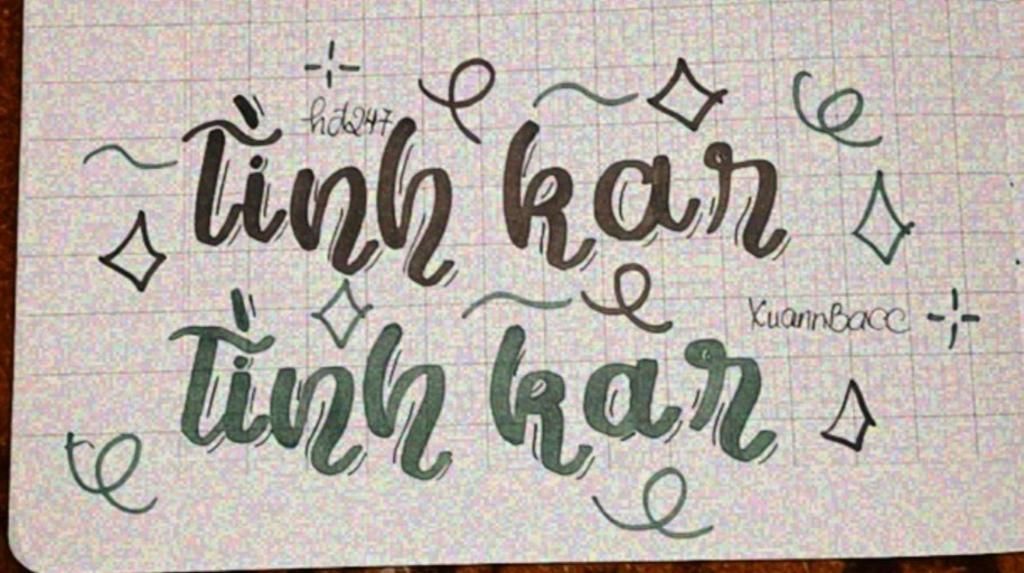 hdz247
Tình kar
XuannBacc
Tình kar